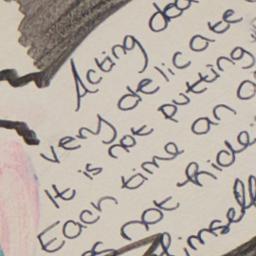 Acting
very delicate
It is not putting
Each time an
not hide
himself